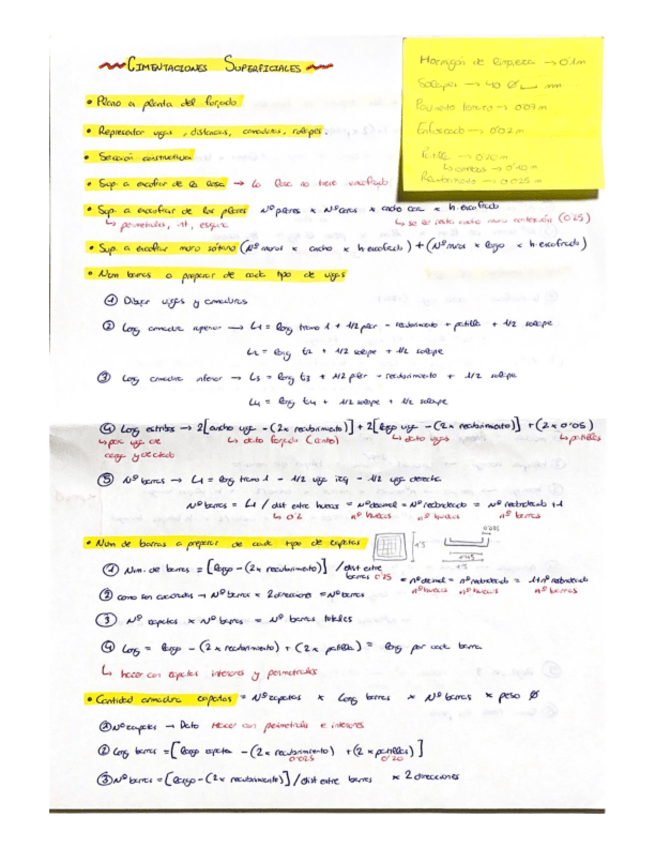 CIMENTACIONES SUPERFICIALES
Hormigón de limpieza → 0'1m
Solapes → 40 Ø mm
→ 0'07m
Enfoscado → 0'02m
→ 0'10m
Recubrimiento → 0'025m
• Plano a planta del forjado
• Representar vigas, distancias, armaduras, solapes.
• Sección constructiva
• Sup. a encofrar de la losa → La losa no lleva encofrado
• Sup. a encofrar de los pilares Nº pilares x Nº caras x ancho cara x h. encofrado
↳ perimetrales, int, esquina
↳ se le resta ancho muro contención (0'25)
• Sup. a encofrar muro sótano (Nº muros x ancho x h encofrado) + (Nº muros x largo x h. encofrado)
• Num barras a preparar de cada tipo de vigas
① Dibujar vigas y armaduras
② Long armadura superior → L1 = long tramo 1 + 1/2 pilar - recubrimiento + patilla + 1/2 solape
L2 = long t2 + 1/2 solape + 1/2 solape
③ Long armadura inferior → L3 = long t3 + 1/2 pilar - recubrimiento + 1/2 solape
L4 = long t4 + 1/2 solape + 1/2 solape
④ Long estribos → 2[ancho viga - (2x recubrimiento)] + 2[largo viga - (2x recubrimiento)] + (2x0'05)
↳ para viga de carga y de atado
↳ dato forjado (canto)
↳ dato vigas
↳ patillas
⑤ Nº barras → L1 = long tramo 1 - 1/2 viga izq - 1/2 viga derecha
Nº barras = L1 / dist entre huecos = nº decimal = Nº redondeado = Nº redondeado +1
↳ 0'2 nº huecos nº huecos nº barras
• Num de barras a preparar de cada tipo de zapatas
1'5
0'025
1'5
① Num. de barras = [largo - (2x recubrimiento)] / dist entre barras 0'25 = nº decimal = nº redondeado = 1+nº redondeado
nº huecos nº huecos nº barras
② como son cuadradas → Nº barras x 2 direcciones = Nº barras
③ Nº zapatas x Nº barras = Nº barras totales
④ Long = largo - (2x recubrimiento) + (2x patilla) = long por cada barra
↳ hacer con zapatas interiores y perimetrales
• Cantidad armadura zapatas = Nº zapatas x Long barras x Nº barras x peso Ø
① Nº zapatas → Dato Hacer con perimetrales e interiores
② Long barras = [largo zapata - (2x recubrimiento) + (2x patillas)]
0'025 0'20
③ Nº barras = [largo - (2x recubrimiento)] / dist entre barras x 2 direcciones